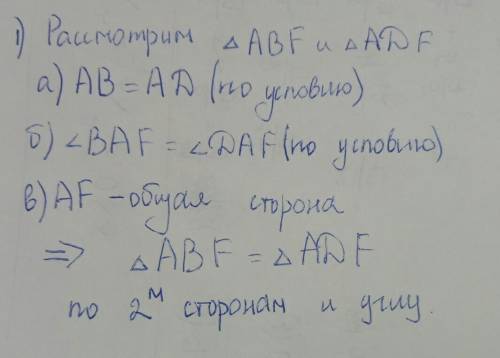 1) Рассмотрим △ABF и △ADF
а) AB = AD (по условию)
б) ∠BAF = ∠DAF (по условию)
в) AF - общая сторона
⇒ △ABF = △ADF
по 2ᴹ сторонам и углу.